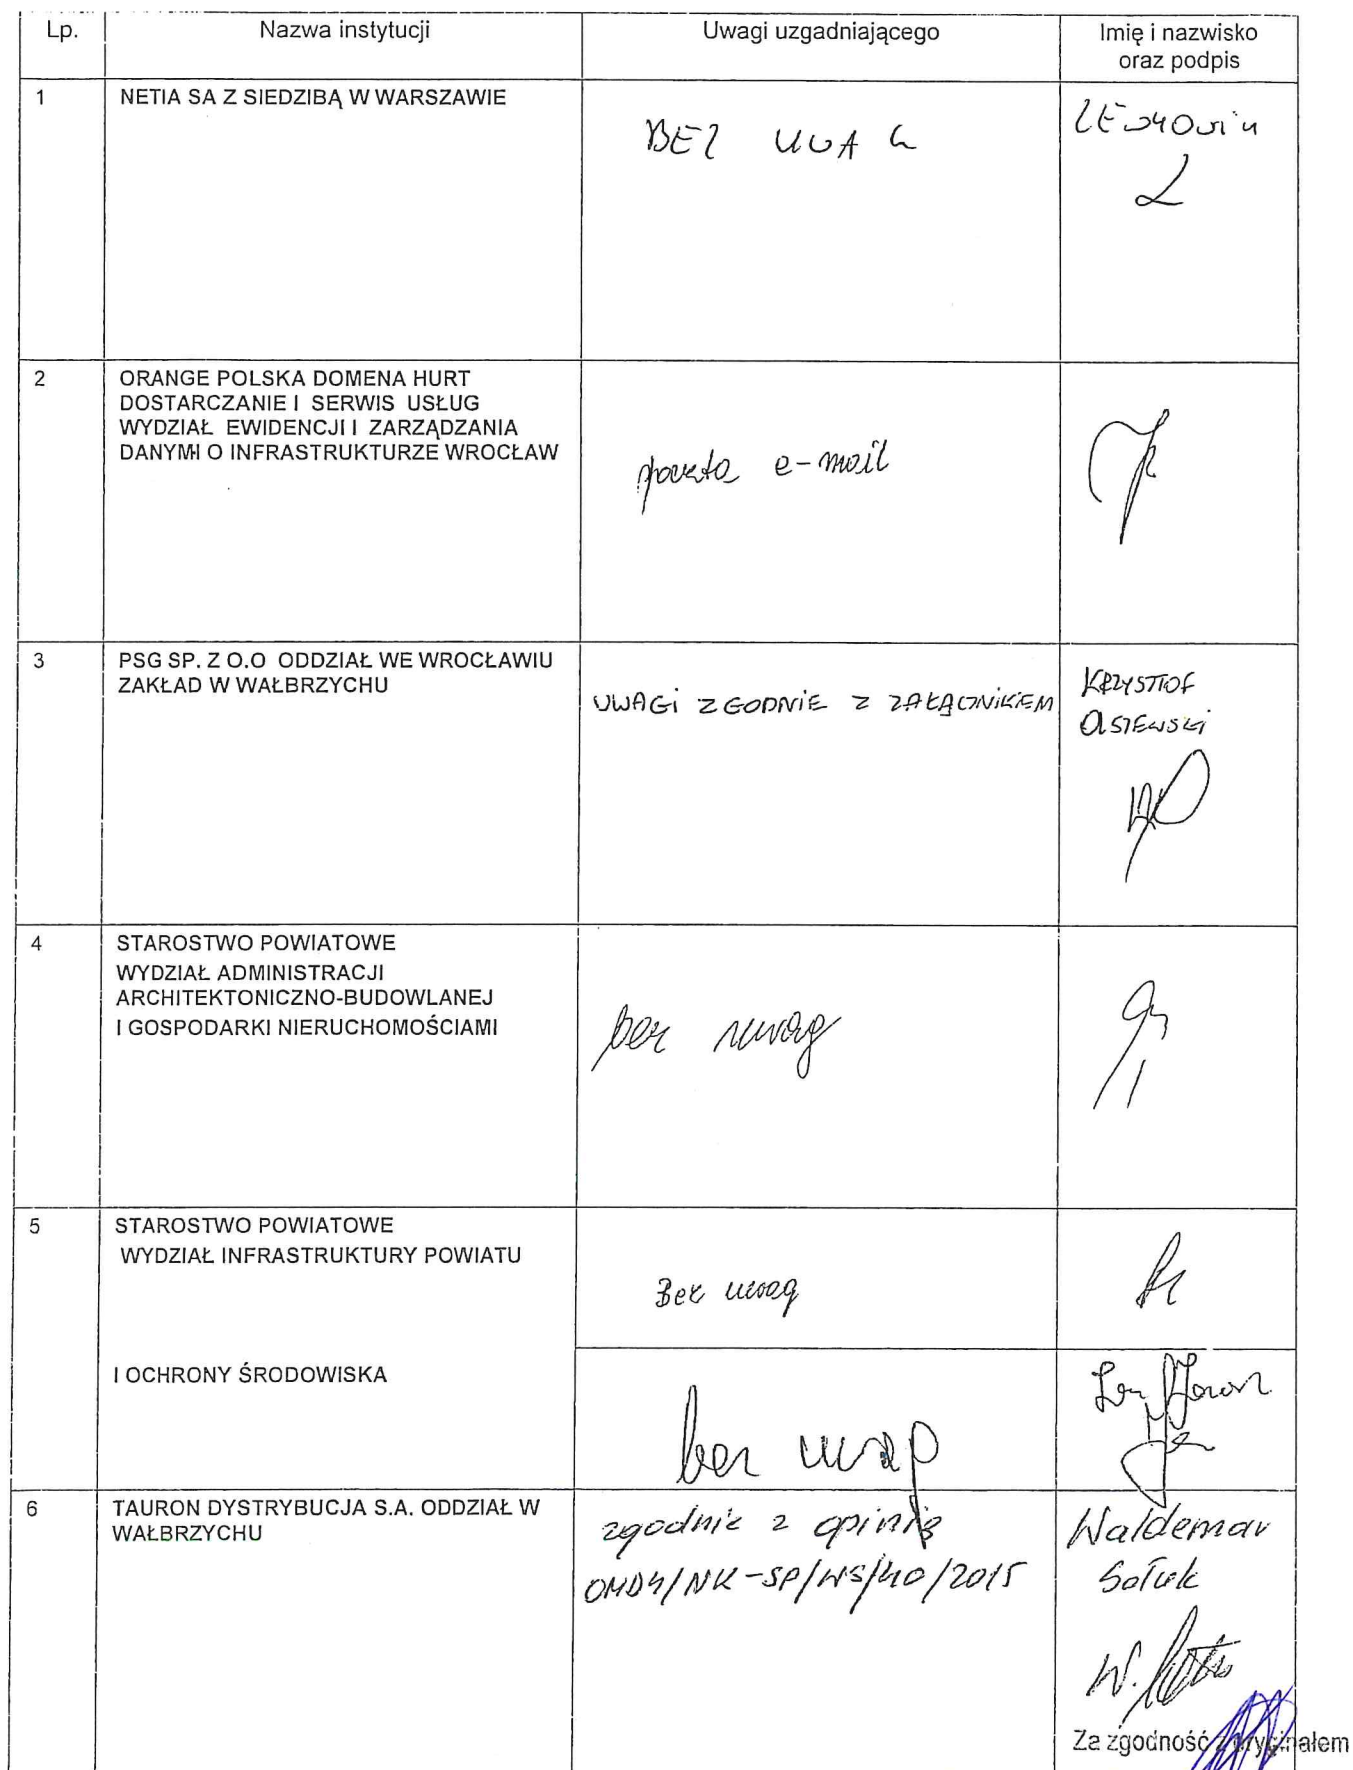 Lp.
Nazwa instytucji
Uwagi uzgadniającego
Imię i nazwisko
oraz podpis
1
NETIA SA Z SIEDZIBĄ W WARSZAWIE
BEZ UWAG
2
ORANGE POLSKA DOMENA HURT
DOSTARCZANIE I SERWIS USŁUG
WYDZIAŁ EWIDENCJI I ZARZĄDZANIA
DANYMI O INFRASTRUKTURZE WROCŁAW
poczta e-mail
3
PSG SP. Z O.O ODDZIAŁ WE WROCŁAWIU
ZAKŁAD W WAŁBRZYCHU
UWAGI ZGODNIE Z ZAŁĄCZNIKIEM
KRZYSZTOF
4
STAROSTWO POWIATOWE
WYDZIAŁ ADMINISTRACJI
ARCHITEKTONICZNO-BUDOWLANEJ
I GOSPODARKI NIERUCHOMOŚCIAMI
bez uwag
5
STAROSTWO POWIATOWE
WYDZIAŁ INFRASTRUKTURY POWIATU
Bez uwag
I OCHRONY ŚRODOWISKA
bez uwag
6
TAURON DYSTRYBUCJA S.A. ODDZIAŁ W
WAŁBRZYCHU
zgodnie z opinią
OMD4/NK-SP/WS/40/2015
Waldemar
Za zgodność z oryginałem